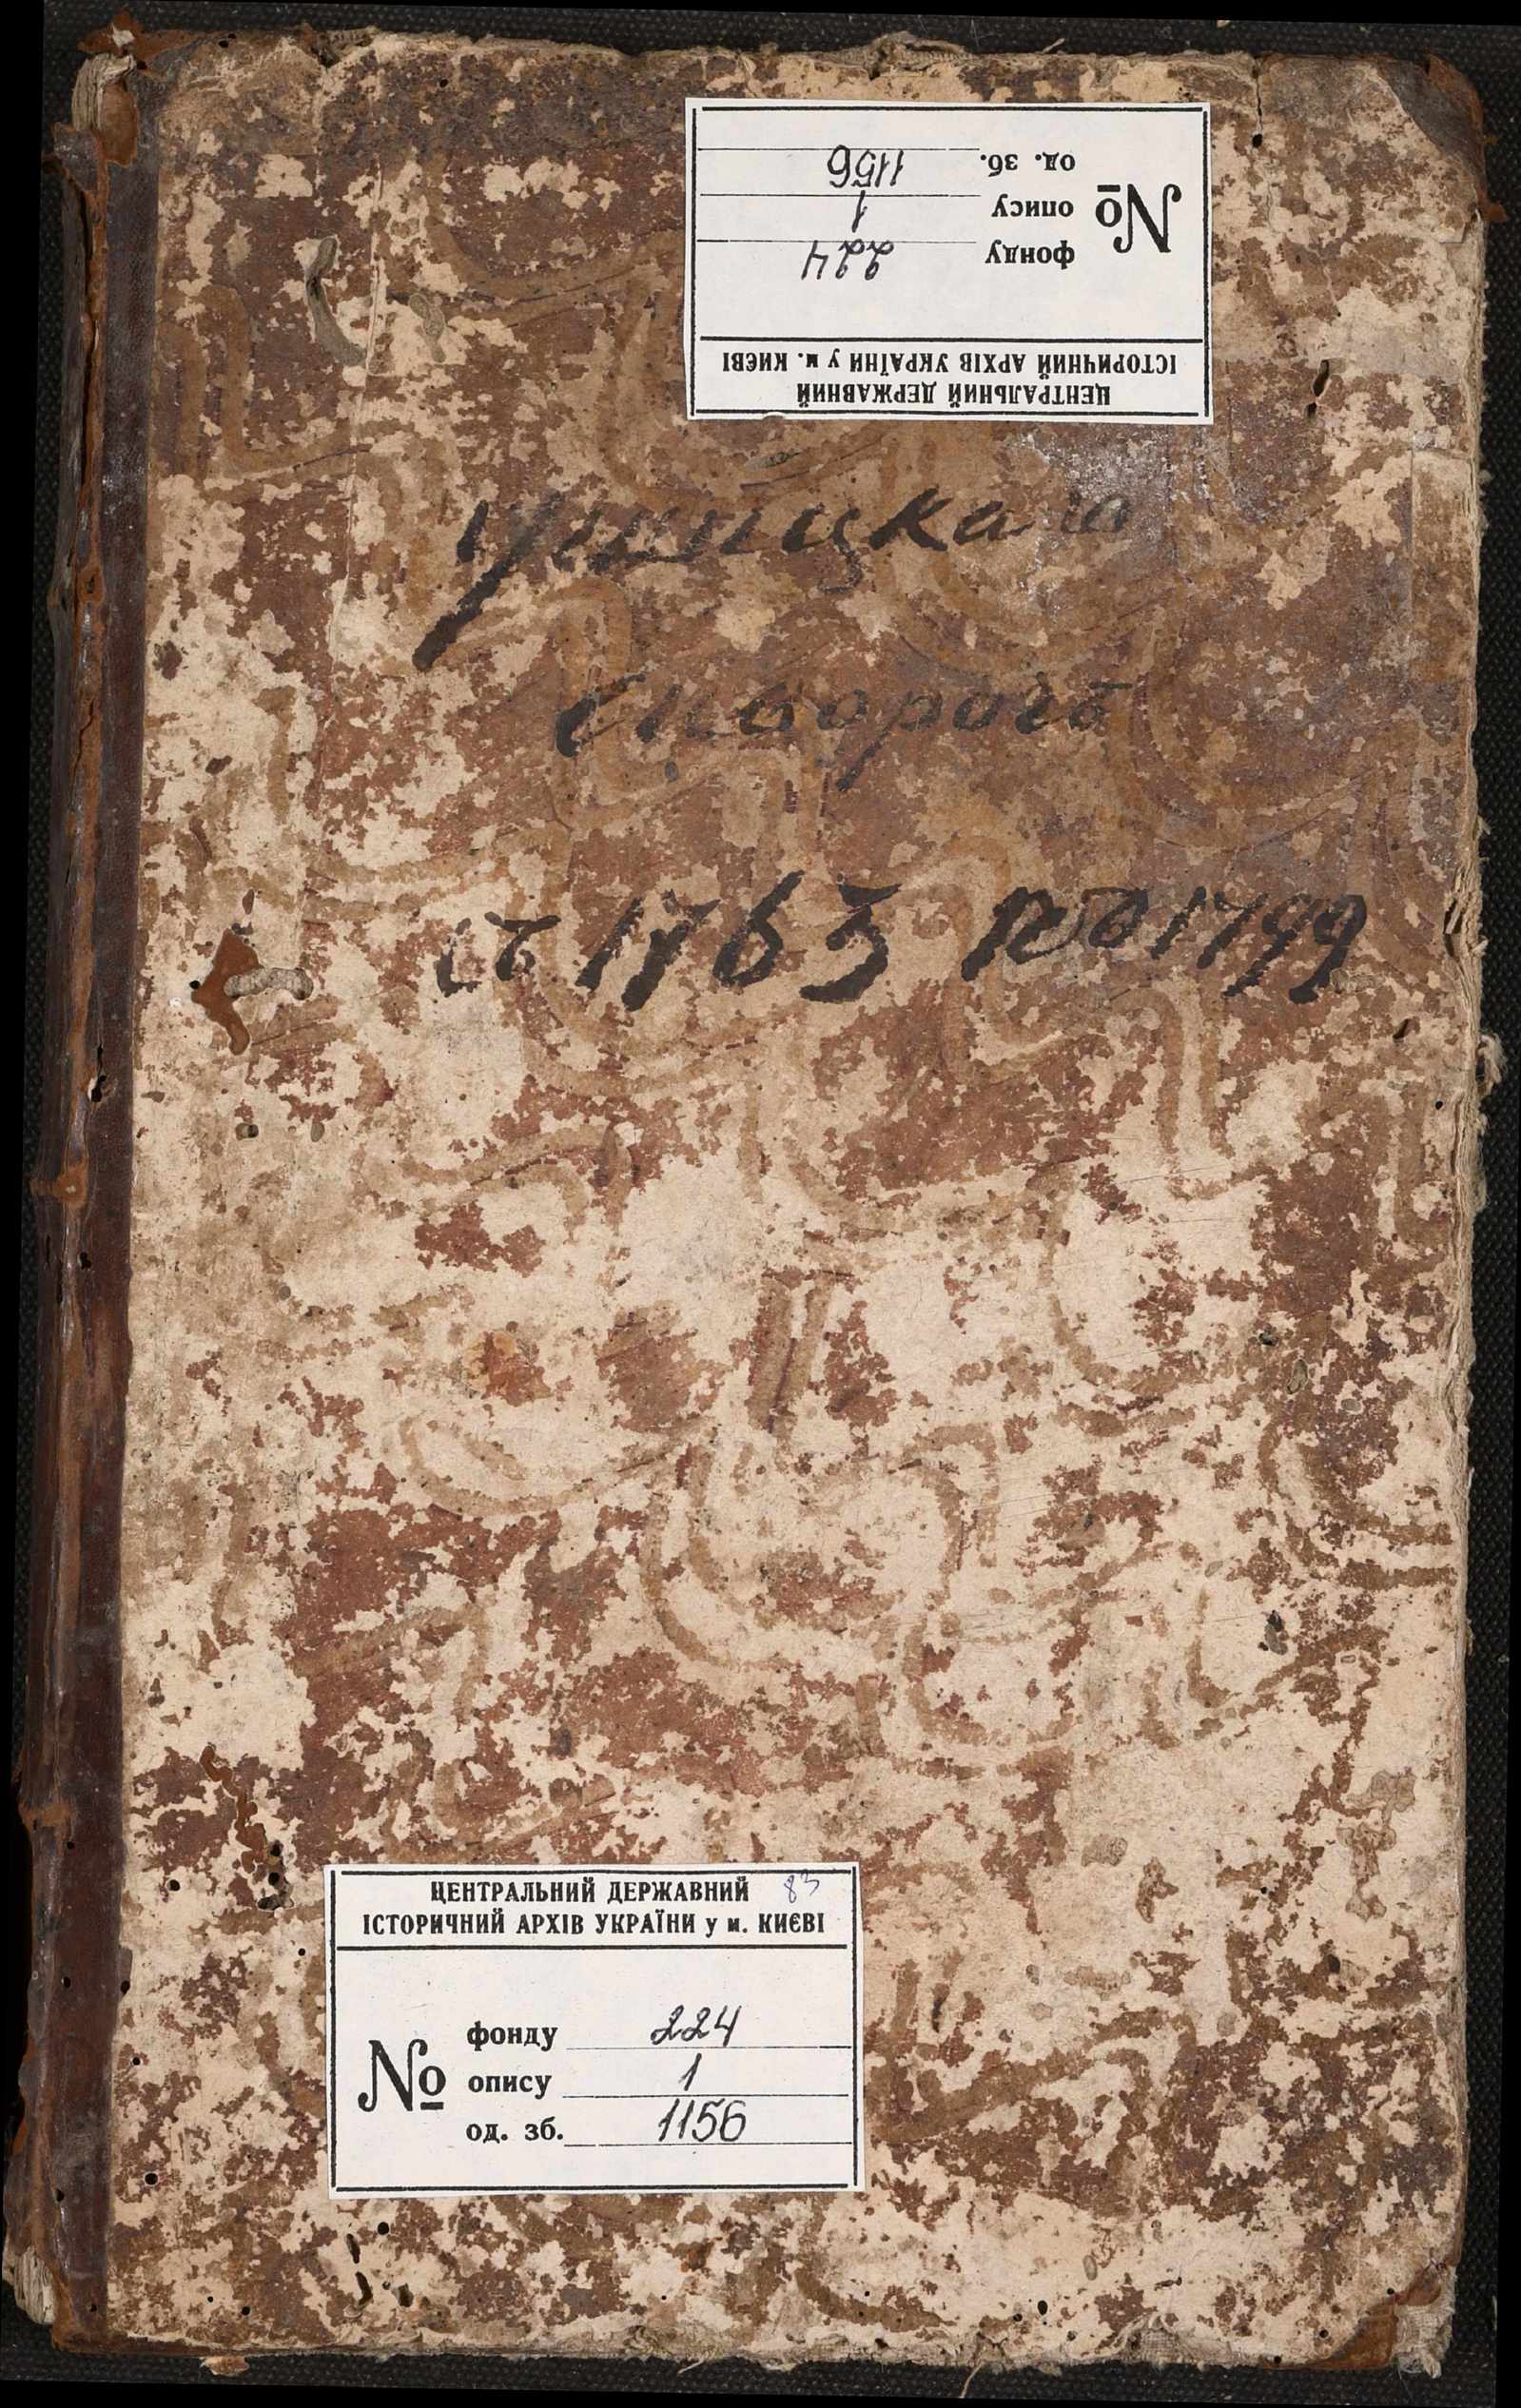 од. зб. 1156
№ опису 1
фонду 224
ЦЕНТРАЛЬНИЙ ДЕРЖАВНИЙ
ІСТОРИЧНИЙ АРХІВ УКРАЇНИ у м. КИЄВІ
Ушицкаго
съ 1763 по 1799
ЦЕНТРАЛЬНИЙ ДЕРЖАВНИЙ 83
ІСТОРИЧНИЙ АРХІВ УКРАЇНИ у м. КИЄВІ
фонду 224
№ опису 1
од. зб. 1156